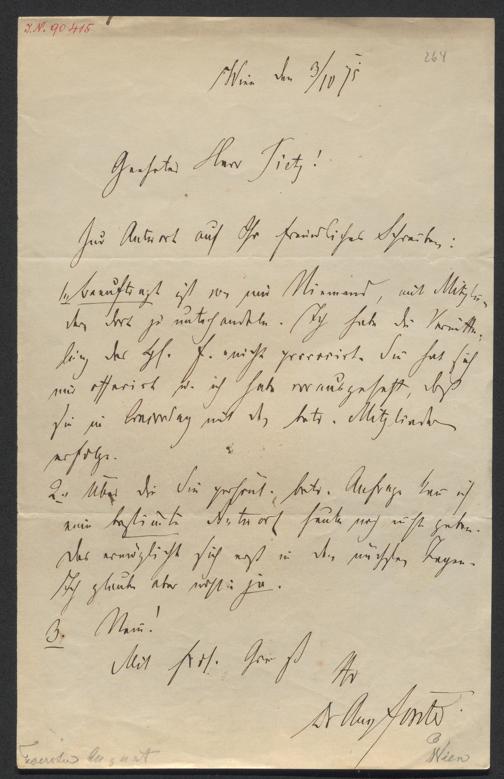 J.N. 90415
264
Wien den 3/10 75
Geehrter Herr Tietz!
Zur Antwort auf Ihr freundliches Schreiben:
1. beauftragt ist von mir Niemand, mit Mitglie-
dern dort zu unterhandeln. Ich habe die Vermitt-
lung des nicht provocirt. Sie hat sich
mir offerirt u. ich habe vorausgesetzt, daß
sie in mit den betr. Mitgliedern
erfolge.
2. Über die betr. Anfrage kann ich
eine bestimmte Antwort heute noch nicht geben.
Das ermöglicht sich erst in den nächsten Tagen.
Ich glaube aber ja.
3. Nein!
Mit Gruß
Ihr
Dr Aug Förster
Foerster August
Wien